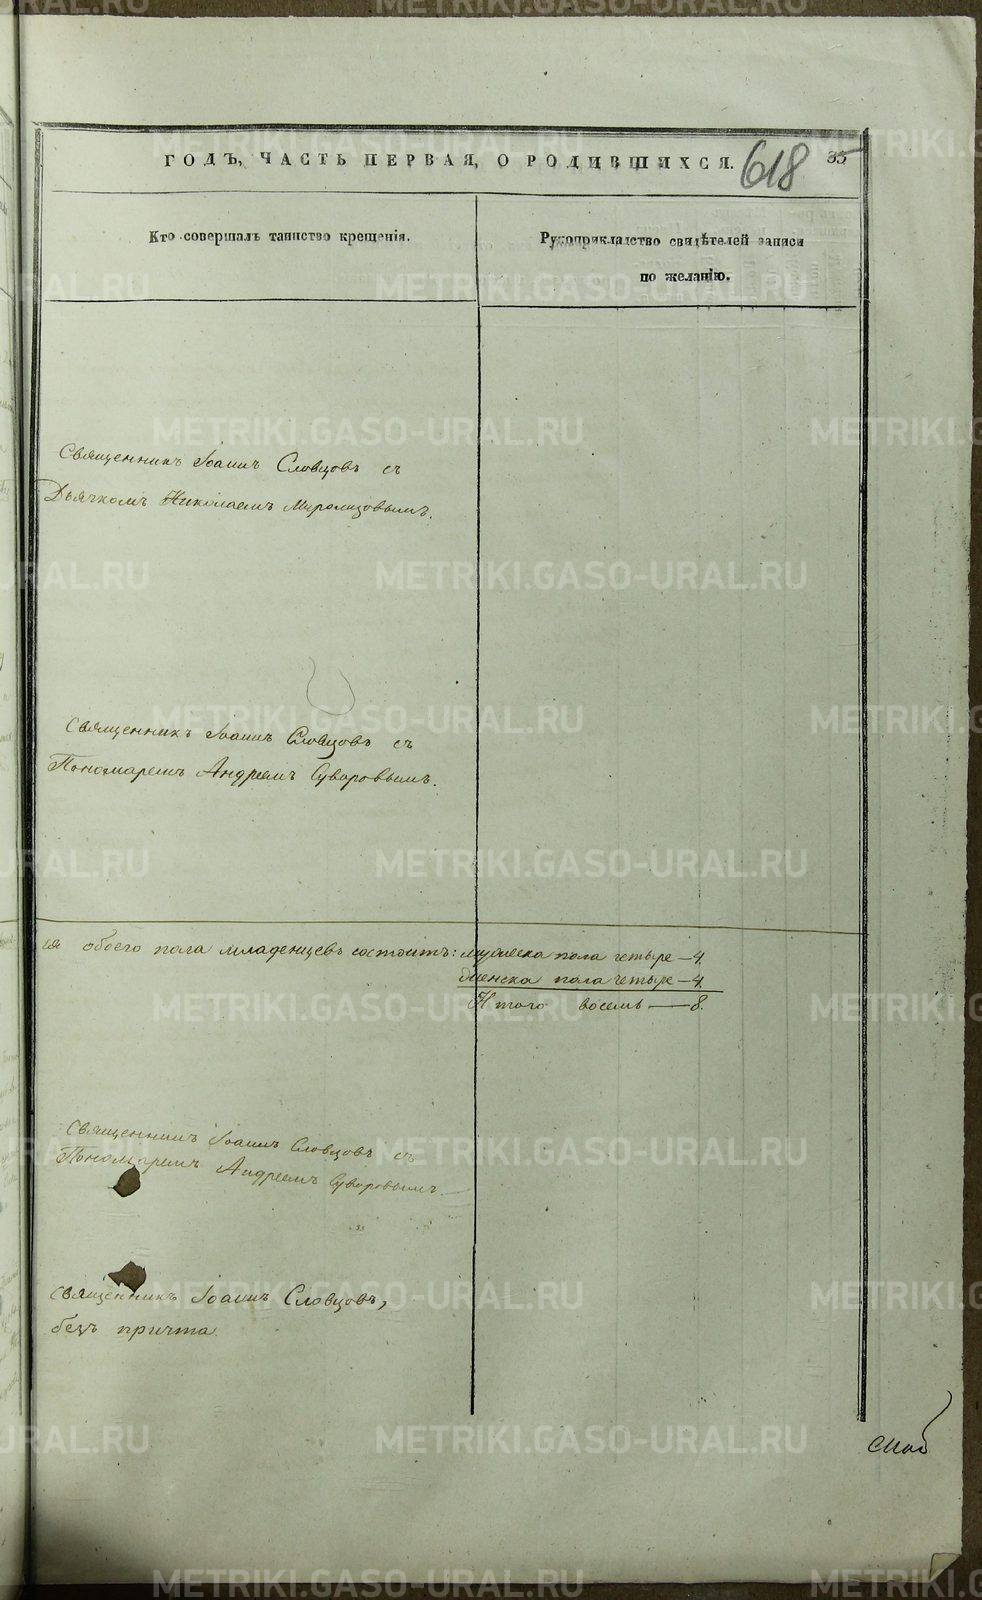 ГОДЪ, ЧАСТЬ ПЕРВАЯ, О РОДИВШИХСЯ.
618
35
Кто совершалъ таинство крещенія.
Рукоприкладство свидѣтелей записи
по желанію.
Священникъ Іоаннъ Словцовъ съ
Дьячкомъ Николаемъ
Священникъ Іоаннъ Словцовъ съ
Пономаремъ Андреемъ Суворовымъ.
обоего пола младенцевъ состоитъ: мужеска пола четыре – 4.
женска пола четыре – 4.
Итого восемь — 8.
Священникъ Іоаннъ Словцовъ съ
Пономаремъ Андреемъ Суворовымъ.
Священникъ Іоаннъ Словцовъ,
безъ причта.
METRIKI.GASO-URAL.RU